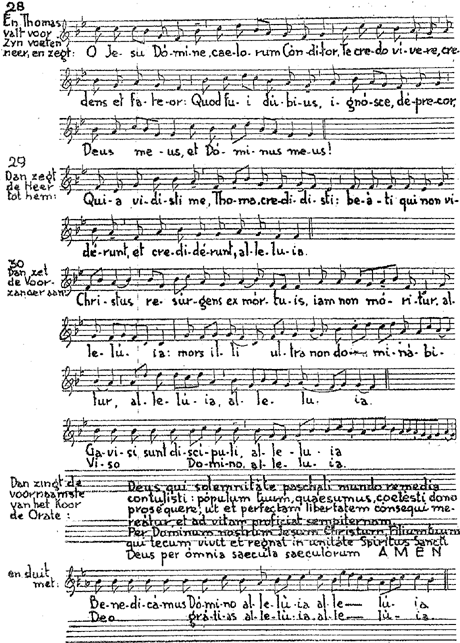 28
En Thomas
valt voor
Zyn voeten
neer, en zegt:
O Je-su Dó-mi-ne, cae-lo-rum Cón-di-tor, te cre-do vi-ve-re, cre-
dens et fa-te-or: Quod fu-i dú-bi-us, i-gnó-sce, dé-pre-cor,
Deus me-us, et Dó-mi-nus me-us!
29
Dan zegt
de Heer
tot hem:
Qui-a vi-di-sti me, Tho-ma, cre-di-di-sti: be-á-ti qui non vi-
dé-runt, et cre-di-dé-runt, al-le-lu-ia.
30
Dan zet
de Voor-
zanger aan:
Chri-stus re-súr-gens ex mór-tu-is, iam non mó-ri-tur, al-
le-lú-ia: mors il-li ul-tra non do-mi-ná-bi-
tur, al-le-lú-ia, al-le-lu-ia.
Ga-vi-si sunt di-sci-pu-li, al-le-lu-ia
Vi-so Do-mi-no, al-le-lu-ia.
Dan zingt de
voornaamste
van het Koor
de Orate:
Deus qui solemnitate paschali mundo remedia
contulisti: pópulum tuum, quaesumus, coelésti dono
proséquere, ut et perfectam libertatem consequi me-
reátur, et ad vitam profíciat sempiternam.
Per Dominum nostrum Jesum Christum, Filium tuum
qui tecum vivit et regnat in unitáte Spiritus Sancti
Deus per omnia saecula saeculorum A M E N
en sluit
met:
Be-ne-di-cá-mus Dó-mi-no al-le-lú-ia al-le-lú-ia
Deo grá-ti-as al-le-lú-ia al-le-lú-ia.